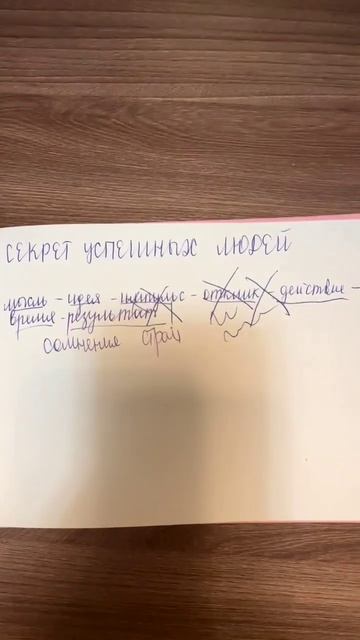 СЕКРЕТ УСПЕШНЫХ ЛЮДЕЙ
мысль - идея - импульс - отклик - действие -
время - результат
сомнения страх